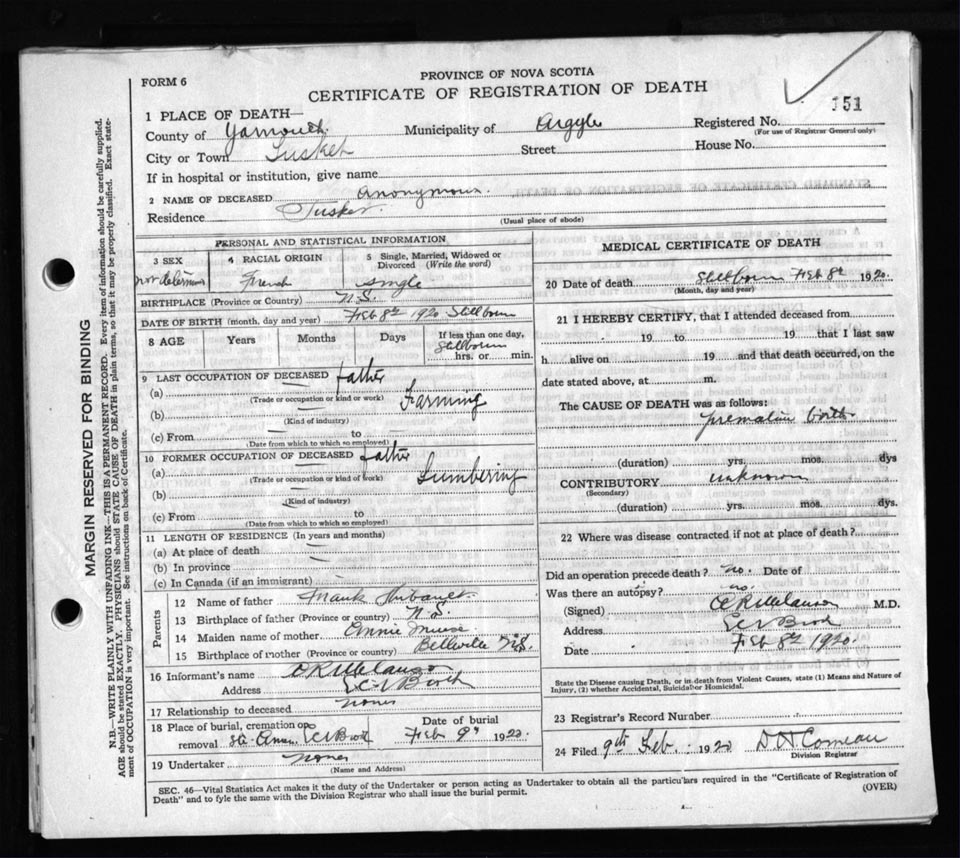 PROVINCE OF NOVA SCOTIA
FORM 6
CERTIFICATE OF REGISTRATION OF DEATH
151
1 PLACE OF DEATH—
Registered No.
(For use of Registrar General only)
County of Yarmouth Municipality of Argyle
City or Town Tusket Street House No.
If in hospital or institution, give name
2 NAME OF DECEASED Anonymous
Residence Tusket
(Usual place of abode)
PERSONAL AND STATISTICAL INFORMATION
3 SEX 4 RACIAL ORIGIN 5 Single, Married, Widowed or Divorced (Write the word)
not French Single
BIRTHPLACE (Province or Country) N.S.
DATE OF BIRTH (month, day and year) Feb 8th 1920 Stillborn
8 AGE Years Months Days If less than one day,
Stillborn
hrs. or min.
9 LAST OCCUPATION OF DECEASED father
(a) Farming
(Trade or occupation or kind or work)
(b)
(Kind of industry)
(c) From to
(Date from which to which so employed)
10 FORMER OCCUPATION OF DECEASED father
(a) Lumbering
(Trade or occupation or kind of work)
(b)
(Kind of industry)
(c) From to
(Date from which to which so employed)
11 LENGTH OF RESIDENCE (In years and months)
(a) At place of death
(b) In province
(c) In Canada (if an immigrant)
Parents
12 Name of father Frank
13 Birthplace of father (Province or country) N.S.
14 Maiden name of mother Annie Muise
15 Birthplace of mother (Province or country) Belleville N.S.
16 Informant's name
Address
17 Relationship to deceased None
18 Place of burial, cremation or removal
Date of burial
Feb 9th 1920
19 Undertaker None
(Name and Address)
MEDICAL CERTIFICATE OF DEATH
20 Date of death Stillborn Feb 8th 1920.
(Month, day and year)
21 I HEREBY CERTIFY, that I attended deceased from
19 to 19 that I last saw
h alive on 19 and that death occurred, on the
date stated above, at m.
The CAUSE OF DEATH was as follows:
premature birth
(duration) yrs. mos. dys
CONTRIBUTORY unknown
(Secondary)
(duration) yrs. mos. dys
22 Where was disease contracted if not at place of death?
Did an operation precede death? no. Date of
Was there an autopsy? no.
(Signed) M.D.
Address
Date Feb 8th 1920.
State the Disease causing Death, or in death from Violent Causes, state (1) Means and Nature of
Injury, (2) whether Accidental, Suicidal or Homicidal.
23 Registrar's Record Number
24 Filed 9th Feb. 1920 Comeau
Division Registrar
SEC. 46—Vital Statistics Act makes it the duty of the Undertaker or person acting as Undertaker to obtain all the particulars required in the "Certificate of Registration of
Death" and to fyle the same with the Division Registrar who shall issue the burial permit.
(OVER)
MARGIN RESERVED FOR BINDING
N.B.—WRITE PLAINLY WITH UNFADING INK—THIS IS A PERMANENT RECORD. Every item of information should be carefully supplied.
AGE should be stated EXACTLY. PHYSICIANS should STATE CAUSE OF DEATH in plain terms, so that it may be properly classified. Exact state-
ment of OCCUPATION is very important. See instructions on back of Certificate.